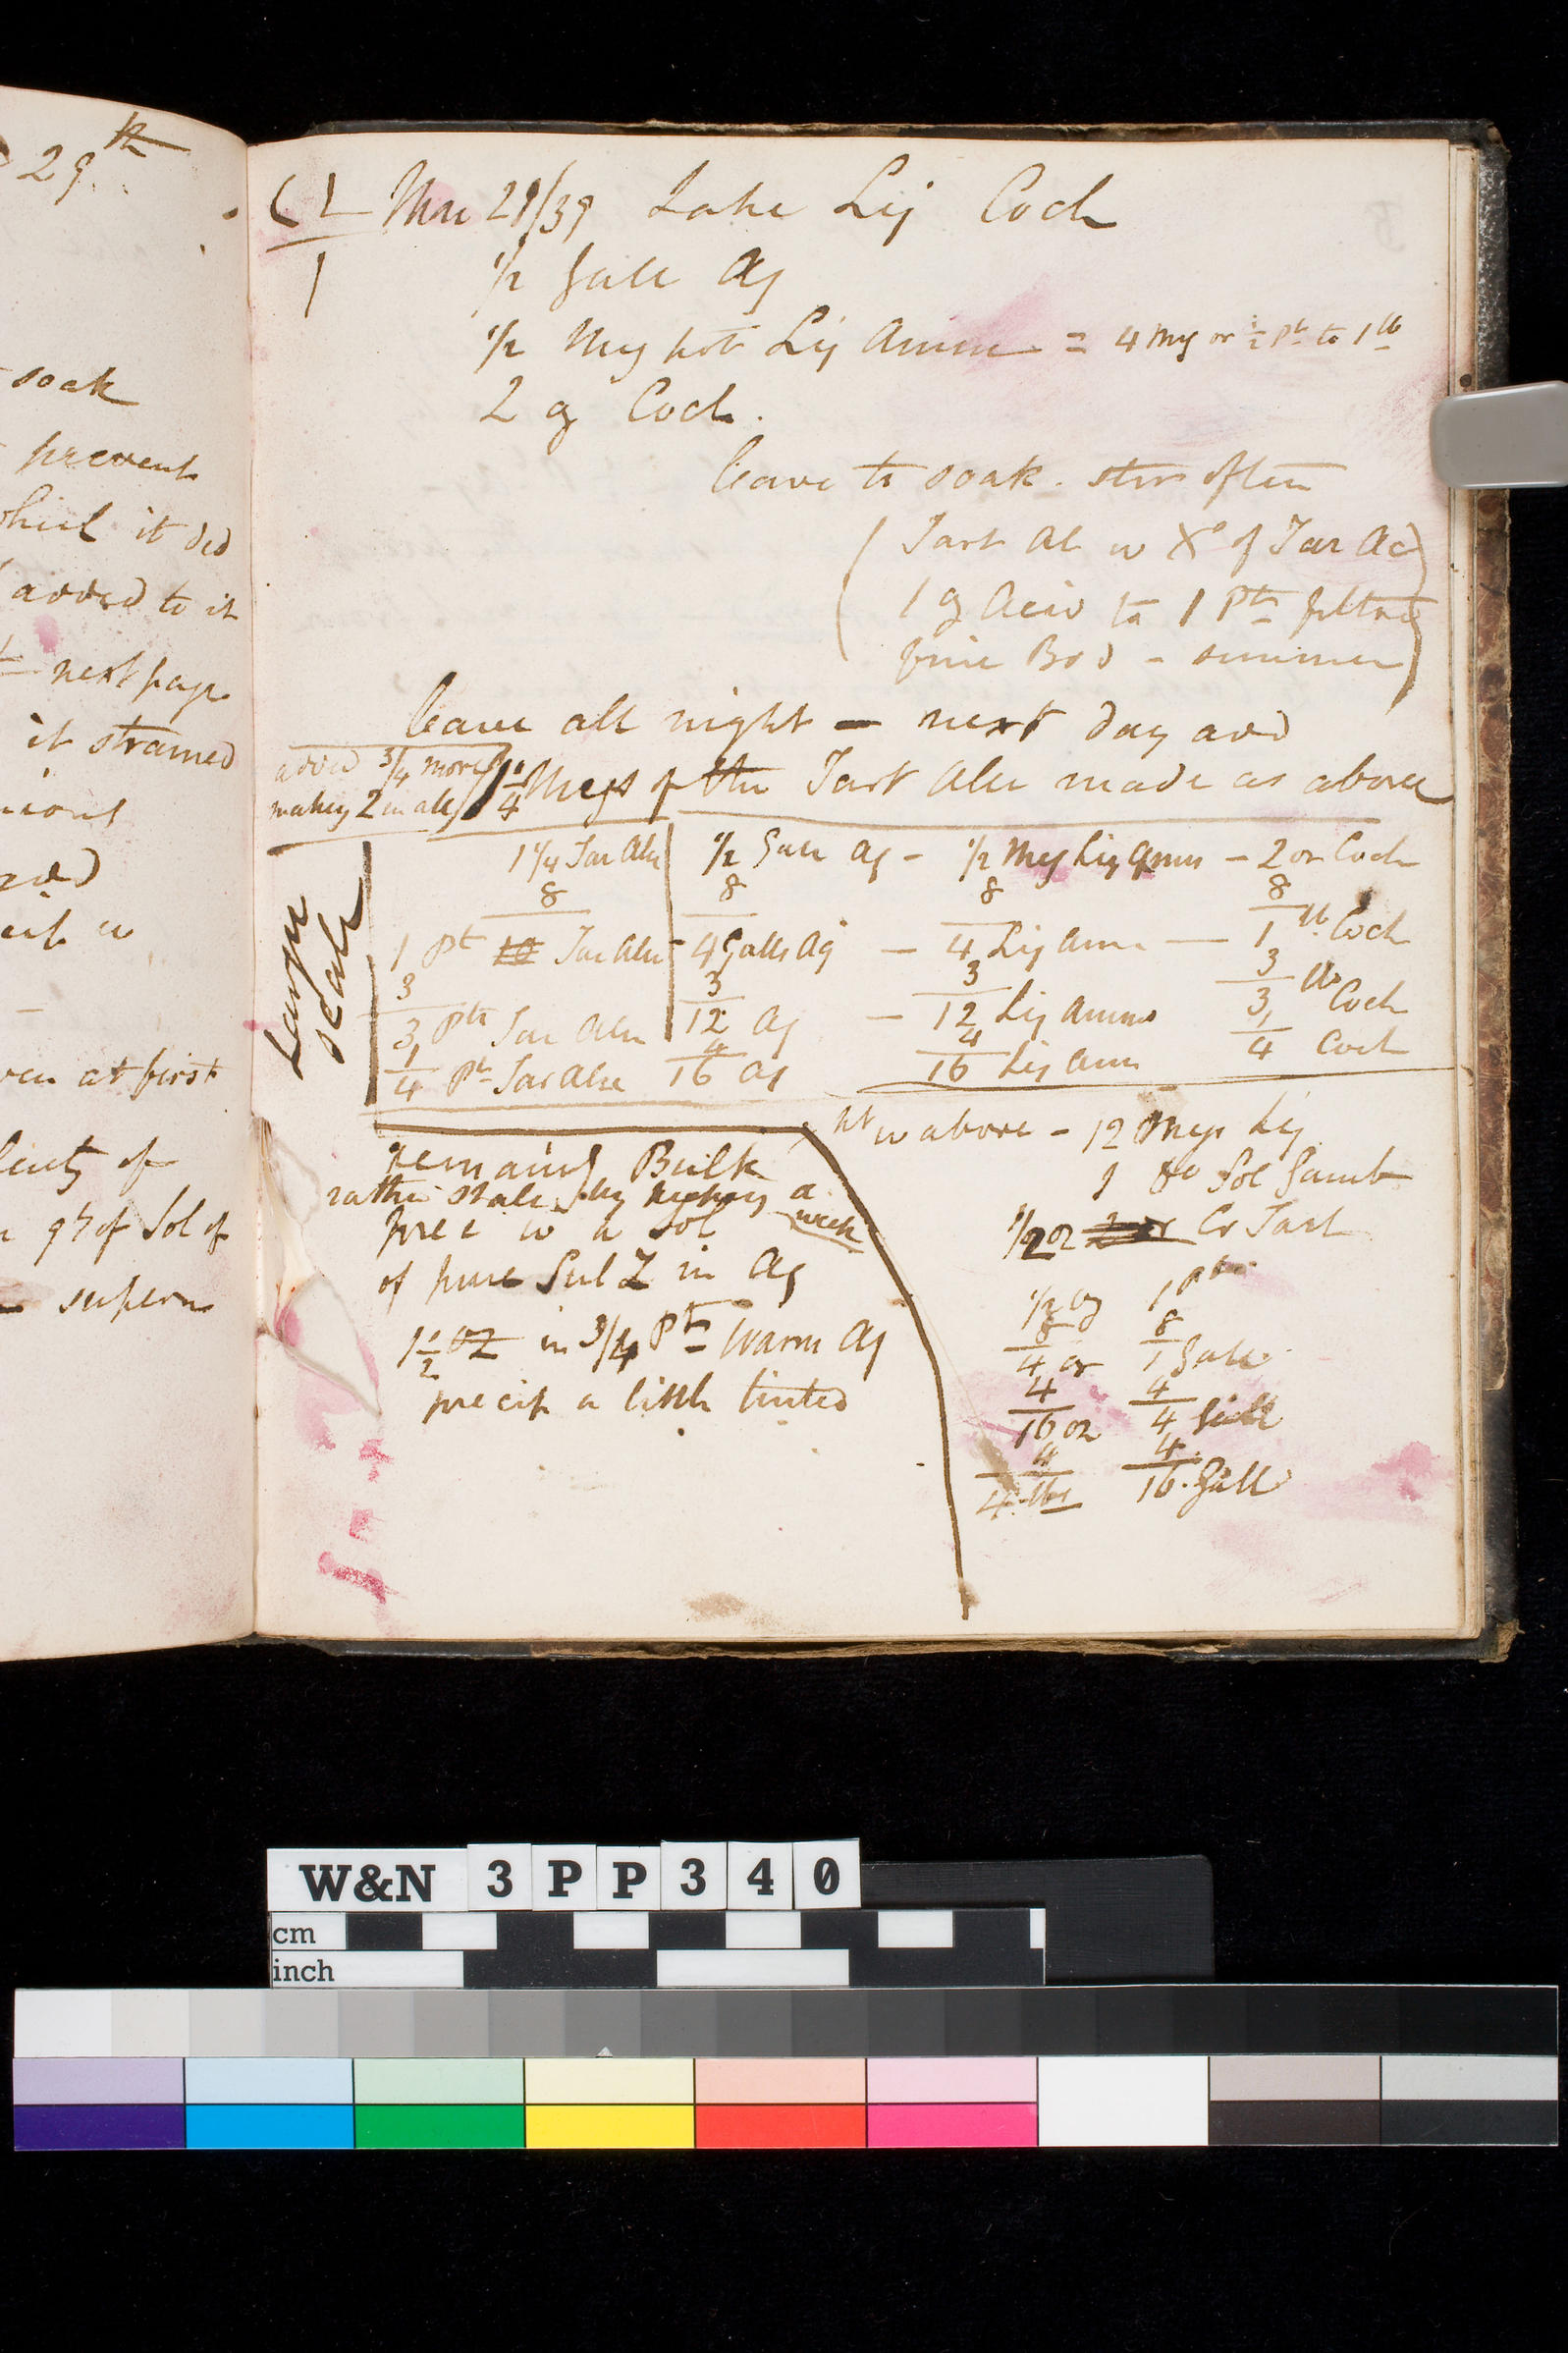 29th
soak
prevent
it did
added to it
next page
it strained
at first
plenty of
qy of Sol of
supern
CL Mar 29/39 Lake Liq Coch
1
1/2 Gall Aq
1/2 Meg hot Liq Amm = 4 Meg or 1/2 Pt to 1 lb
2 oz Coch.
leave to soak. stir often
( Tart Al w Xs of Tar Ac )
1 oz Acid to 1 Pt filtred
fine Bod - summer
leave all night - next day add
added 3/4 more
making 2 in all
1 1/4 Megs of the Tart Alu made as above
Large scale
1 1/4 Tar Alu 1/2 Gall Aq - 1/2 Meg Liq Amm - 2 oz Coch
8 8 8 8
1 Pt 10 Tar Alu 4 Galls Aq - 4 Liq Amm - 1 lb Coch
3 3 3 3
3 Pts Tar Alu 12 Aq - 12 Liq Amm 3 lbs Coch
1 4 4 1
4 Pts Tar Alu 16 Aq 16 Liq Amm 4 Coch
remaing Bulk
rather stale by keeping a
week
prec w a Sol
of pure Sul Z in Aq
1 1/2 oz in 3/4 Pt Warm Aq
precip a little tinted
pt w above - 12 Megs Liq
1 do Sol Gamb
1/2 oz 2 oz Cr Tart
1/2 oz 1 Pt
8 8
4 oz 1 Gall
4 4
16 oz 4 Gall
4 4
4 lbs 16 Gall
W&N 3PP340
cm
inch